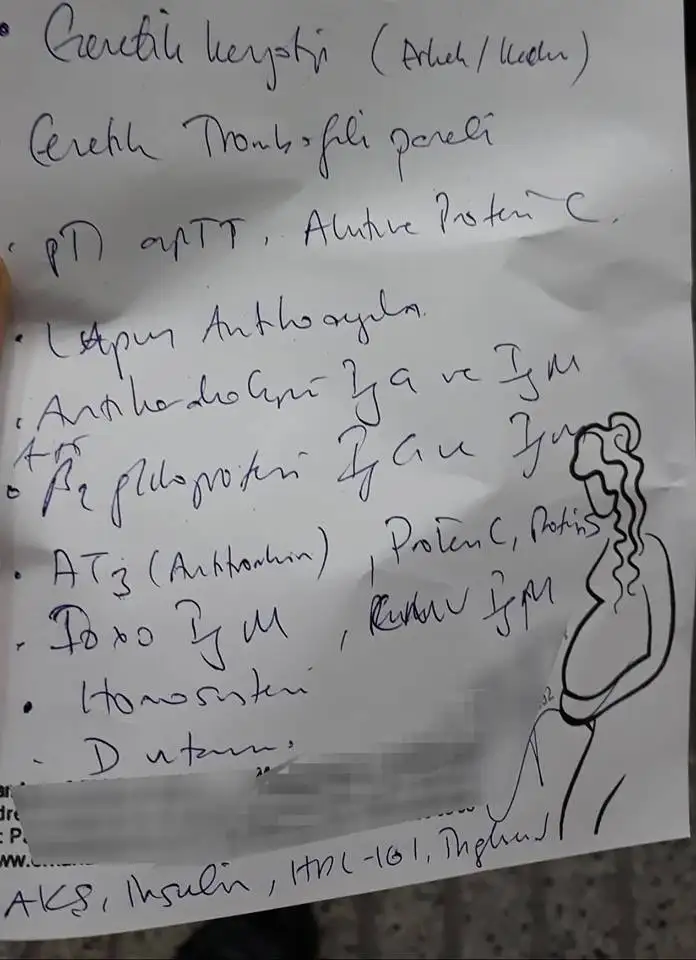 Genetik karyotip (Erkek/Kadın)
Genetik Trombofili paneli
PT, apTT, Aktive Protein C.
Lupus Antikoagulan
Antikardiolipin IgG ve IgM
Anti
β2 glikoprotein IgG ve IgM
AT3 (Antitrombin), Protein C, Protein S
Toxo IgM, CMV IgM
Homosistein
D vitamin
AKŞ, Insulin, HDL-LDL, Trigliserid